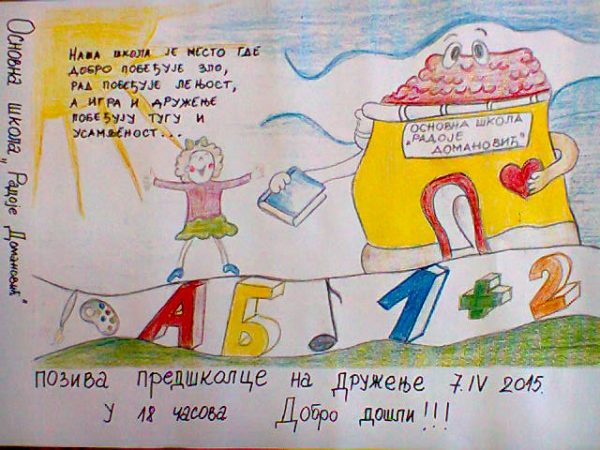 Основна школа „Радоје Домановић"
НАША ШКОЛА ЈЕ МЕСТО ГДЕ
ДОБРО ПОБЕЂУЈЕ ЗЛО,
РАД ПОБЕЂУЈЕ ЛЕЊОСТ,
А ИГРА И ДРУЖЕЊЕ
ПОБЕЂУЈУ ТУГУ И
УСАМЉЕНОСТ...
ОСНОВНА ШКОЛА
„РАДОЈЕ
ДОМАНОВИЋ"
А Б 1 + 2
ПОЗИВА ПРЕДШКОЛЦЕ НА ДРУЖЕЊЕ 7.IV 2015.
У 18 ЧАСОВА ДОБРО ДОШЛИ!!!